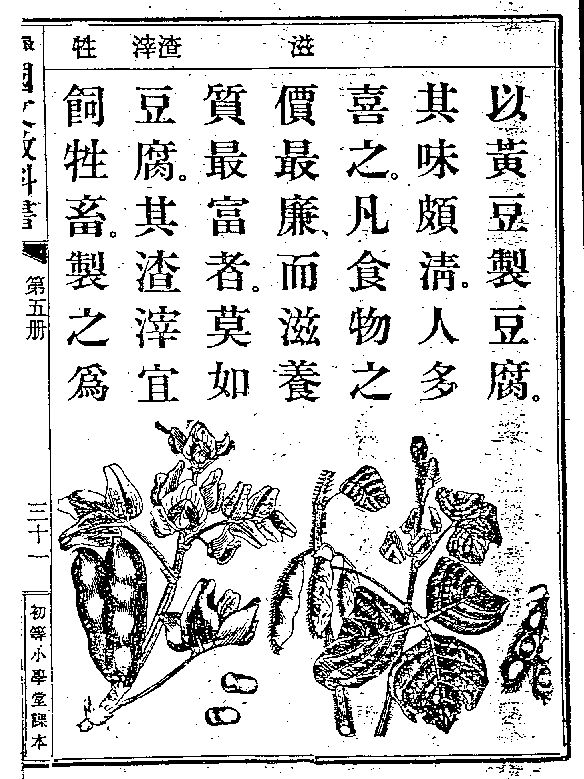 滋
渣滓
牲
以黃豆製豆腐。
其味頗淸。人多
喜之。凡食物之
價最廉、而滋養
質最富者。莫如
豆腐。其渣滓宜
飼牲畜。製之爲
國文教科書
第五册
三十一
初等小學堂課本